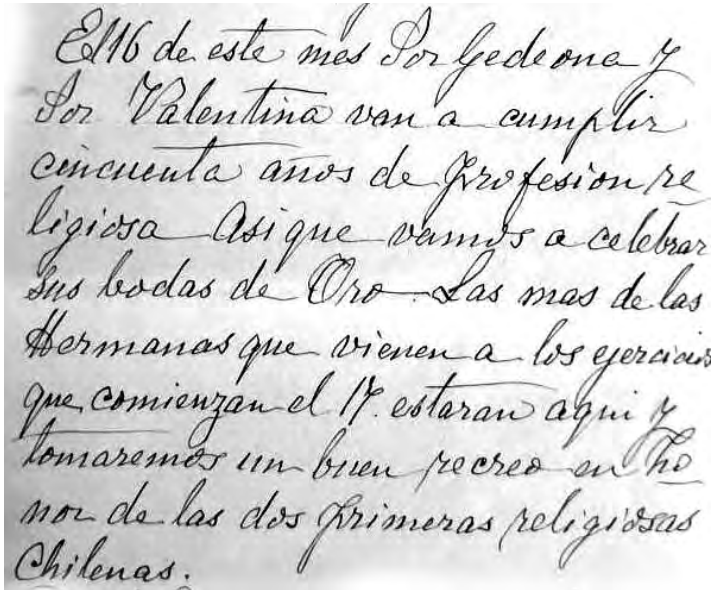 El 16 de este mes Sor Gedeona y
Sor Valentina van a cumplir
cincuenta años de profesion re-
ligiosa Asi que vamos a celebrar
sus bodas de Oro. Las mas de las
Hermanas que vienen a los ejercicios
que comienzan el 17. estaran aqui y
tomaremos un buen recreo en ho-
nor de las dos primeras religiosas
Chilenas.